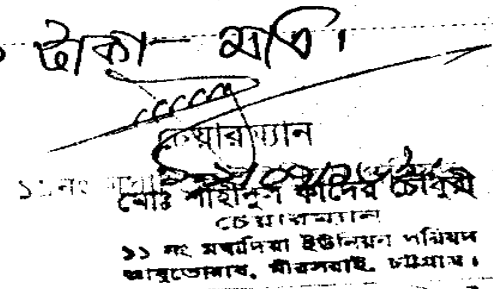 টাকা — মতি।
চেয়ারম্যান
১১নং
মোঃ শাহীনুল কাদের চৌধুরী
চেয়ারম্যান
১১ নং মঘাদিয়া ইউনিয়ন পরিষদ
আবুতোরাব, মীরসরাই, চট্টগ্রাম।